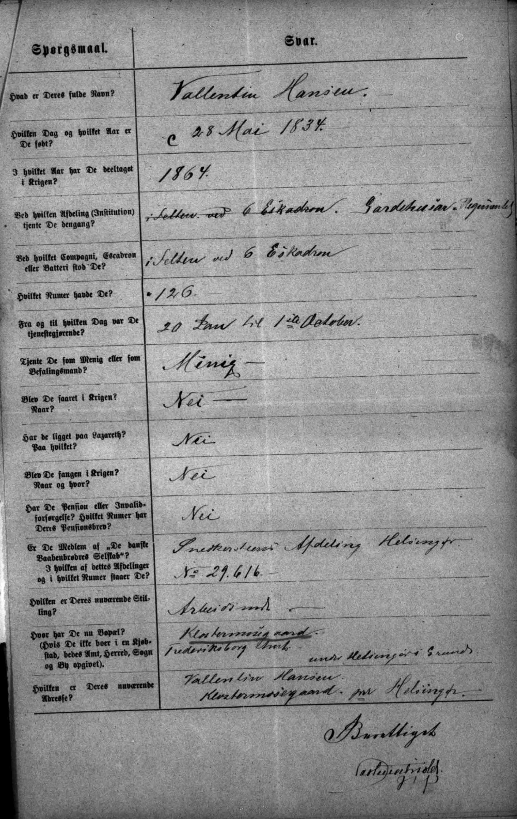 Spørgsmaal.
Svar.
Hvad er Deres fulde Navn?
Vallentin Hansen.
Hvilken Dag og hvilket Aar er
De født?
28 Mai 1834.
I hvilket Aar har De deeltaget
i Krigen?
1864.
Ved hvilken Afdeling (Institution)
tjente De dengang?
i Felten ved 6 Eskadron. Gardehusar-Regimentet
Ved hvilket Compagni, Escadron
eller Batteri stod De?
i Felten ved 6 Eskadron
Hvilket Numer havde De?
126
Fra og til hvilken Dag var De
tjenestegjørende?
20 Jan til 1ste October.
Tjente De som Menig eller som
Befalingsmand?
Minig
Blev De saaret i Krigen?
Naar?
Nei
Har De ligget paa Lazareth?
Paa hvilket?
Nei
Blev De fangen i Krigen?
Naar og hvor?
Nei
Har De Pension eller Invalid-
forsørgelse? Hvilket Numer har
Deres Pensionsbrev?
Nei
Er De Medlem af „De danske
Vaabenbrødres Selskab"?
I hvilken af dettes Afdelinger
og i hvilket Numer staaer De?
Afdeling Helsingør
No 29.616.
Hvilken er Deres nuværende Stil-
ling?
Arbeidsmd
Hvor har De nu Bopæl?
(Hvis De ikke boer i en Kjøb-
stad, bedes Amt, Herred, Sogn
og By opgivet).
Klostermosegaard.
Frederiksborg Amt.
under Helsingørs Grund
Hvilken er Deres nuværende
Adresse?
Vallentin Hansen.
Klostermosegaard. pr Helsingør.
Berettiget